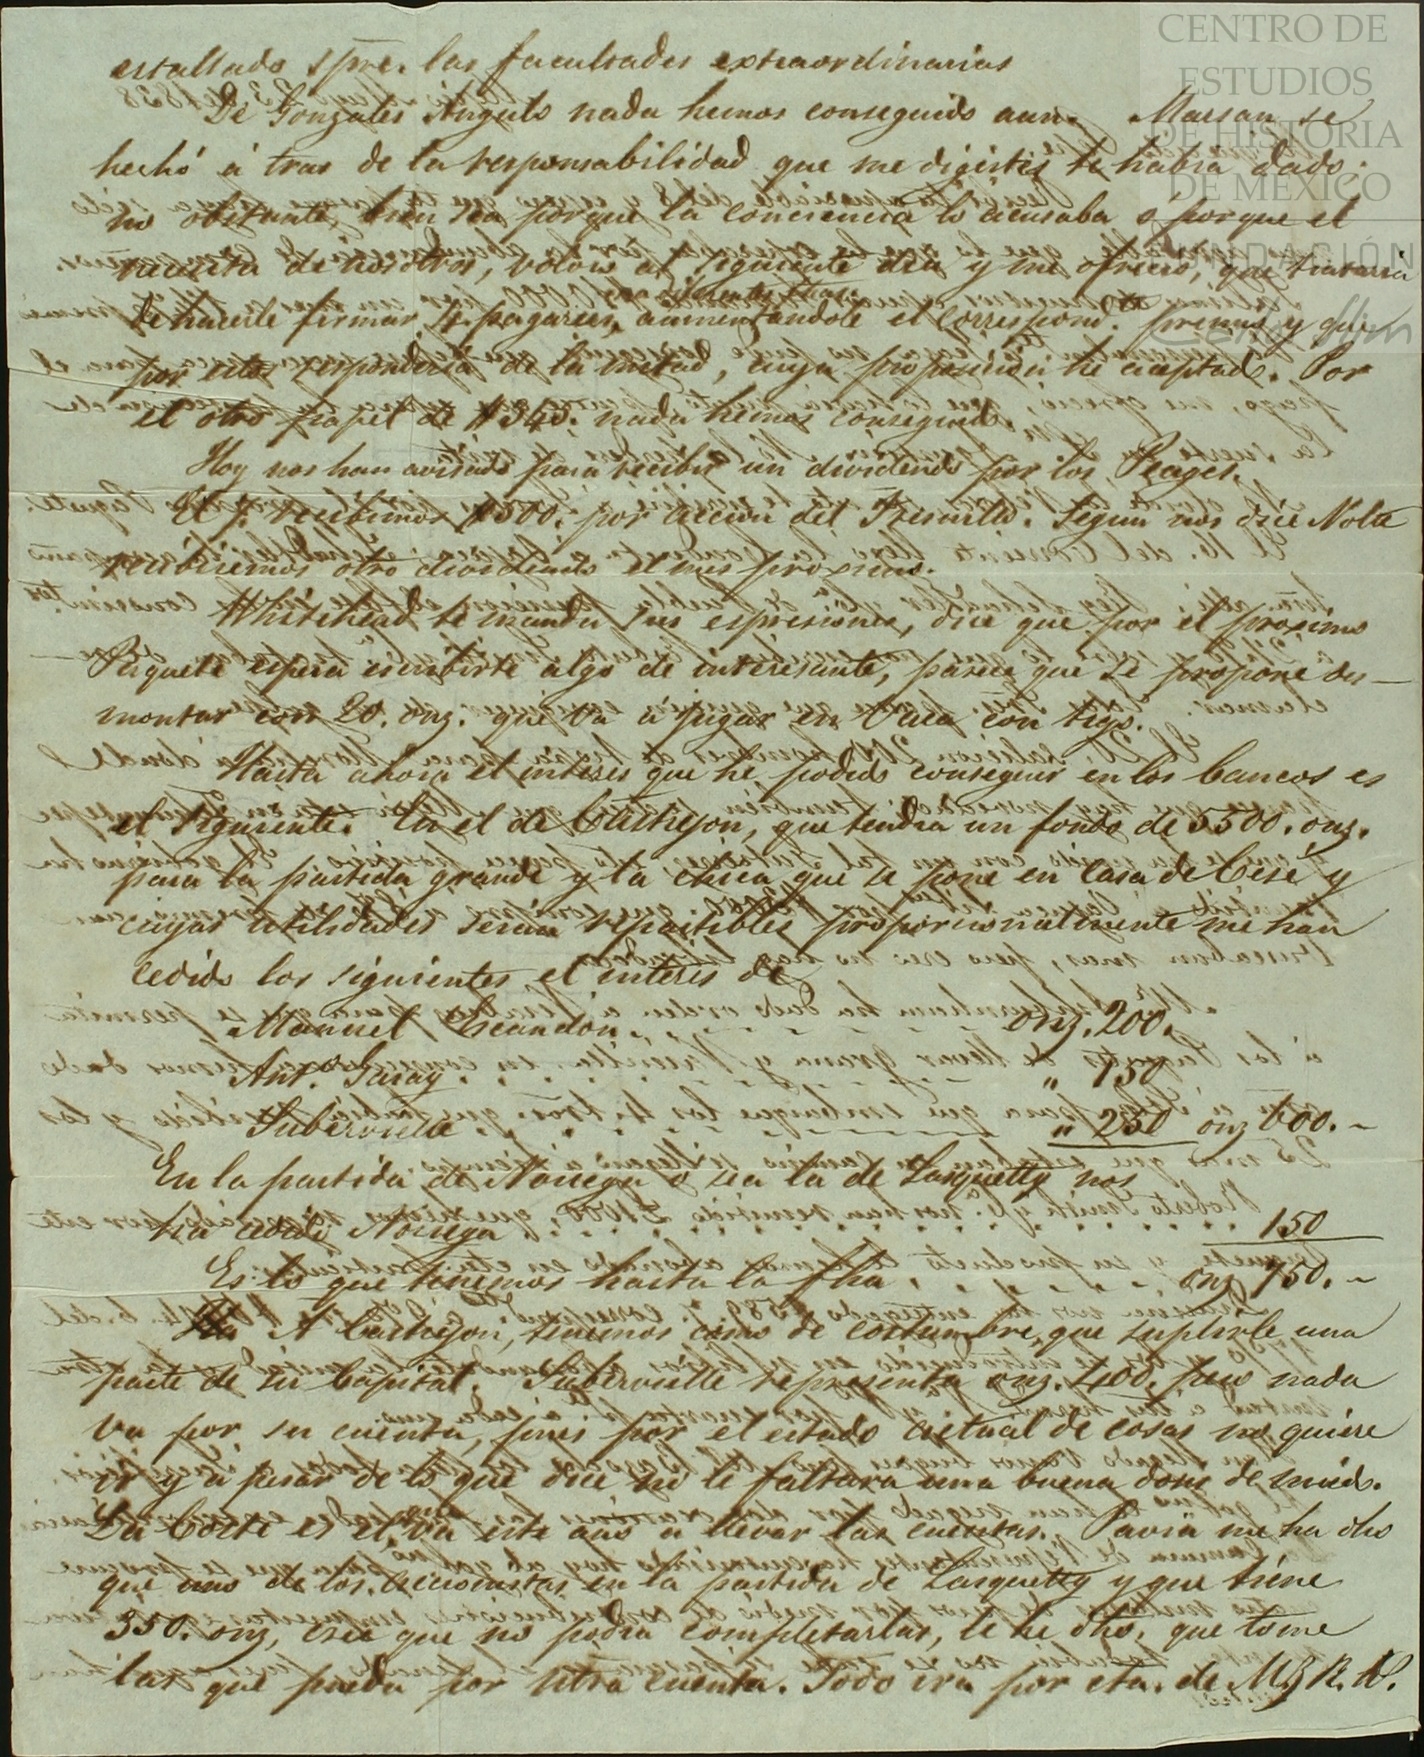 estallado spre. las facultades extraordinarias
De Gonzales Angulo nada hemos conseguido aun. Marsan se
hechó á tras de la responsabilidad que me digistes te habia dado:
no obstante, bien sea porque la conciencia lo acusaba ó porque el
necesita de nosotros, volvio al siguiente dia y me ofrecio, que trataria
de hacerle firmar pagarees, aumentandole el correspond.te premio y que
por estos responderia de la mitad, cuya proposicion he aceptado. Por
el otro papel de $340. nada hemos conseguido.
Hoy nos han avisado para recibir un dividendo por los Peages.
El recibimos $500. por accion del Fresnillo. Segun nos dice Nolte
recibiremos otro dividendo el mes proximo.
Whitehead te manda sus espresiones, dice que por el proximo
Paquete espera escribirte algo de interesante, parece que se propone des-
montar con 20. onz. que va á jugar en Vaca con tigo.
Hasta ahora el interes que he podido conseguir en los bancos es
el siguiente. En el de Castrejon, que tendra un fondo de 5500. onz.
para la partida grande y la chica que se pone en casa de Cese y
cuyas utilidades seran repartibles proporcionalmente me han
cedido los siguientes el interes de
Manuel Escandon onz. 200.
Ant.o Garay " 150
Subervielle " 250 onz 600. -
En la partida de Noriega o sea la de Lasquetty nos
ha cedido Noriega 150
Es lo que tenemos hasta la fha onz 750. -
A Castrejon, tenemos como de costumbre, que suplirle una
parte de su Capital. Subervielle representa onz. 400. pero nada
va por su cuenta, pues por el estado actual de cosas no quiere
ir y á pesar de lo que dice no le faltara una buena dosis de miedo.
De Corte es el que va este año a llevar las cuentas. Pavia me ha dho
que uno de los accionistas en la partida de Lasquetty y que tiene
350. onz, cree que no podra completarlas, le he dho. que tome
las que pueda por ntra cuenta. Todo ira por cta. de M. y R. N.
CENTRO DE
ESTUDIOS
DE HISTORIA
DE MÉXICO
FUNDACIÓN
Carlos Slim